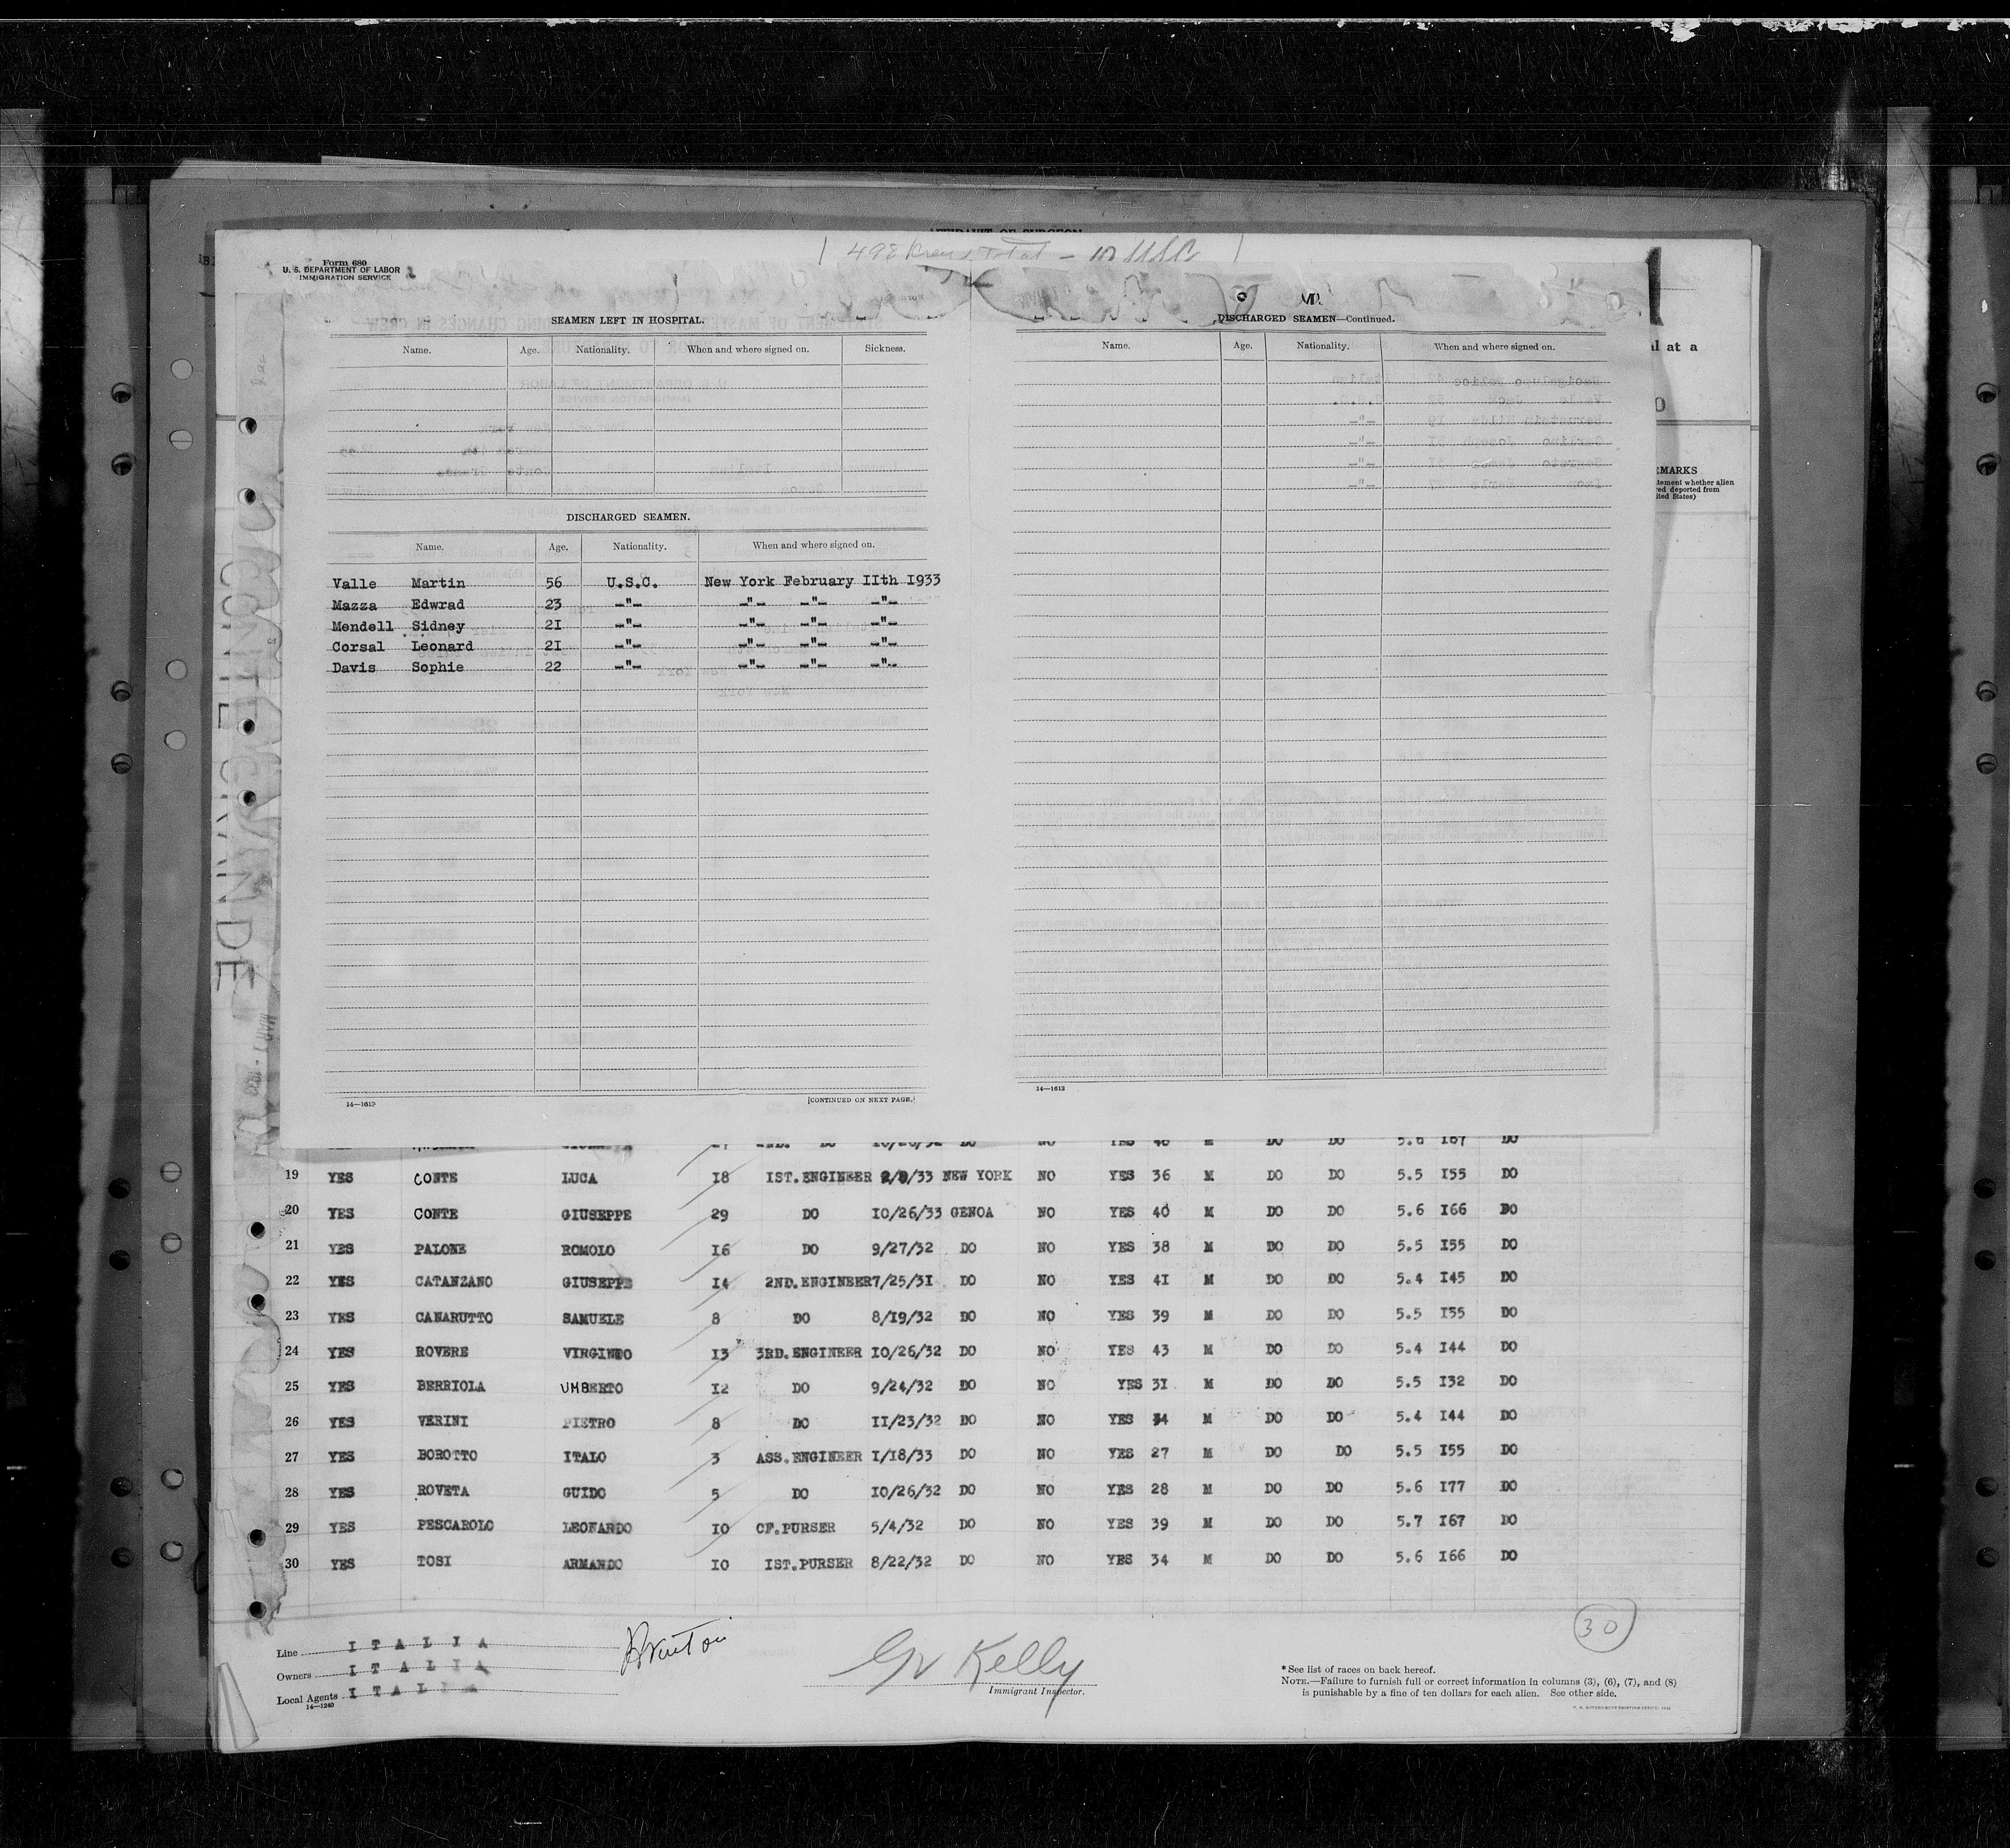 498 Crew Total - 10 USC
Form 680
U. S. DEPARTMENT OF LABOR
IMMIGRATION SERVICE
SEAMEN LEFT IN HOSPITAL.
Name. Age. Nationality. When and where signed on. Sickness.
DISCHARGED SEAMEN.
Name. Age. Nationality. When and where signed on.
Valle Martin 56 U.S.C. New York February IIth I933
Mazza Edwrad 23 -"- -"- -"- -"-
Mendell Sidney 2I -"- -"- -"- -"-
Corsal Leonard 2I -"- -"- -"- -"-
Davis Sophie 22 -"- -"- -"- -"-
14—1613
[CONTINUED ON NEXT PAGE.]
DISCHARGED SEAMEN—Continued.
Name. Age. Nationality. When and where signed on.
14—1613
al at a
EMARKS
tement whether alien
red deported from
ited States)
CONTE GRANDE
19 YES CONTE LUCA I8 IST.ENGINEER 2/9/33 NEW YORK NO YES 36 M DO DO 5.5 I55 DO
20 YES CONTE GIUSEPPE 29 DO IO/26/33 GENOA NO YES 40 M DO DO 5.6 I66 DO
21 YES PALONE ROMOLO I6 DO 9/27/32 DO NO YES 38 M DO DO 5.5 I55 DO
22 YES CATANZANO GIUSEPPE I4 2ND.ENGINEER 7/25/3I DO NO YES 4I M DO DO 5.4 I45 DO
23 YES CANARUTTO SAMUELE 8 DO 8/I9/32 DO NO YES 39 M DO DO 5.5 I55 DO
24 YES ROVERE VIRGINIO I3 3RD.ENGINEER IO/26/32 DO NO YES 43 M DO DO 5.4 I44 DO
25 YES BERRIOLA UMBERTO I2 DO 9/24/32 DO NO YES 3I M DO DO 5.5 I32 DO
26 YES VERINI PIETRO 8 DO II/23/32 DO NO YES 34 M DO DO 5.4 I44 DO
27 YES BOROTTO ITALO 3 ASS.ENGINEER I/I8/33 DO NO YES 27 M DO DO 5.5 I55 DO
28 YES ROVETA GUIDO 5 DO IO/26/32 DO NO YES 28 M DO DO 5.6 I77 DO
29 YES PESCAROLO LEONARDO IO CF.PURSER 5/4/32 DO NO YES 39 M DO DO 5.7 I67 DO
30 YES TOSI ARMANDO IO IST.PURSER 8/22/32 DO NO YES 34 M DO DO 5.6 I66 DO
30
Line I T A L I A
Owners I T A L I A
Local Agents I T A L I A
14—1240
Gv Kelly
Immigrant Inspector.
* See list of races on back hereof.
NOTE.—Failure to furnish full or correct information in columns (3), (6), (7), and (8)
is punishable by a fine of ten dollars for each alien. See other side.